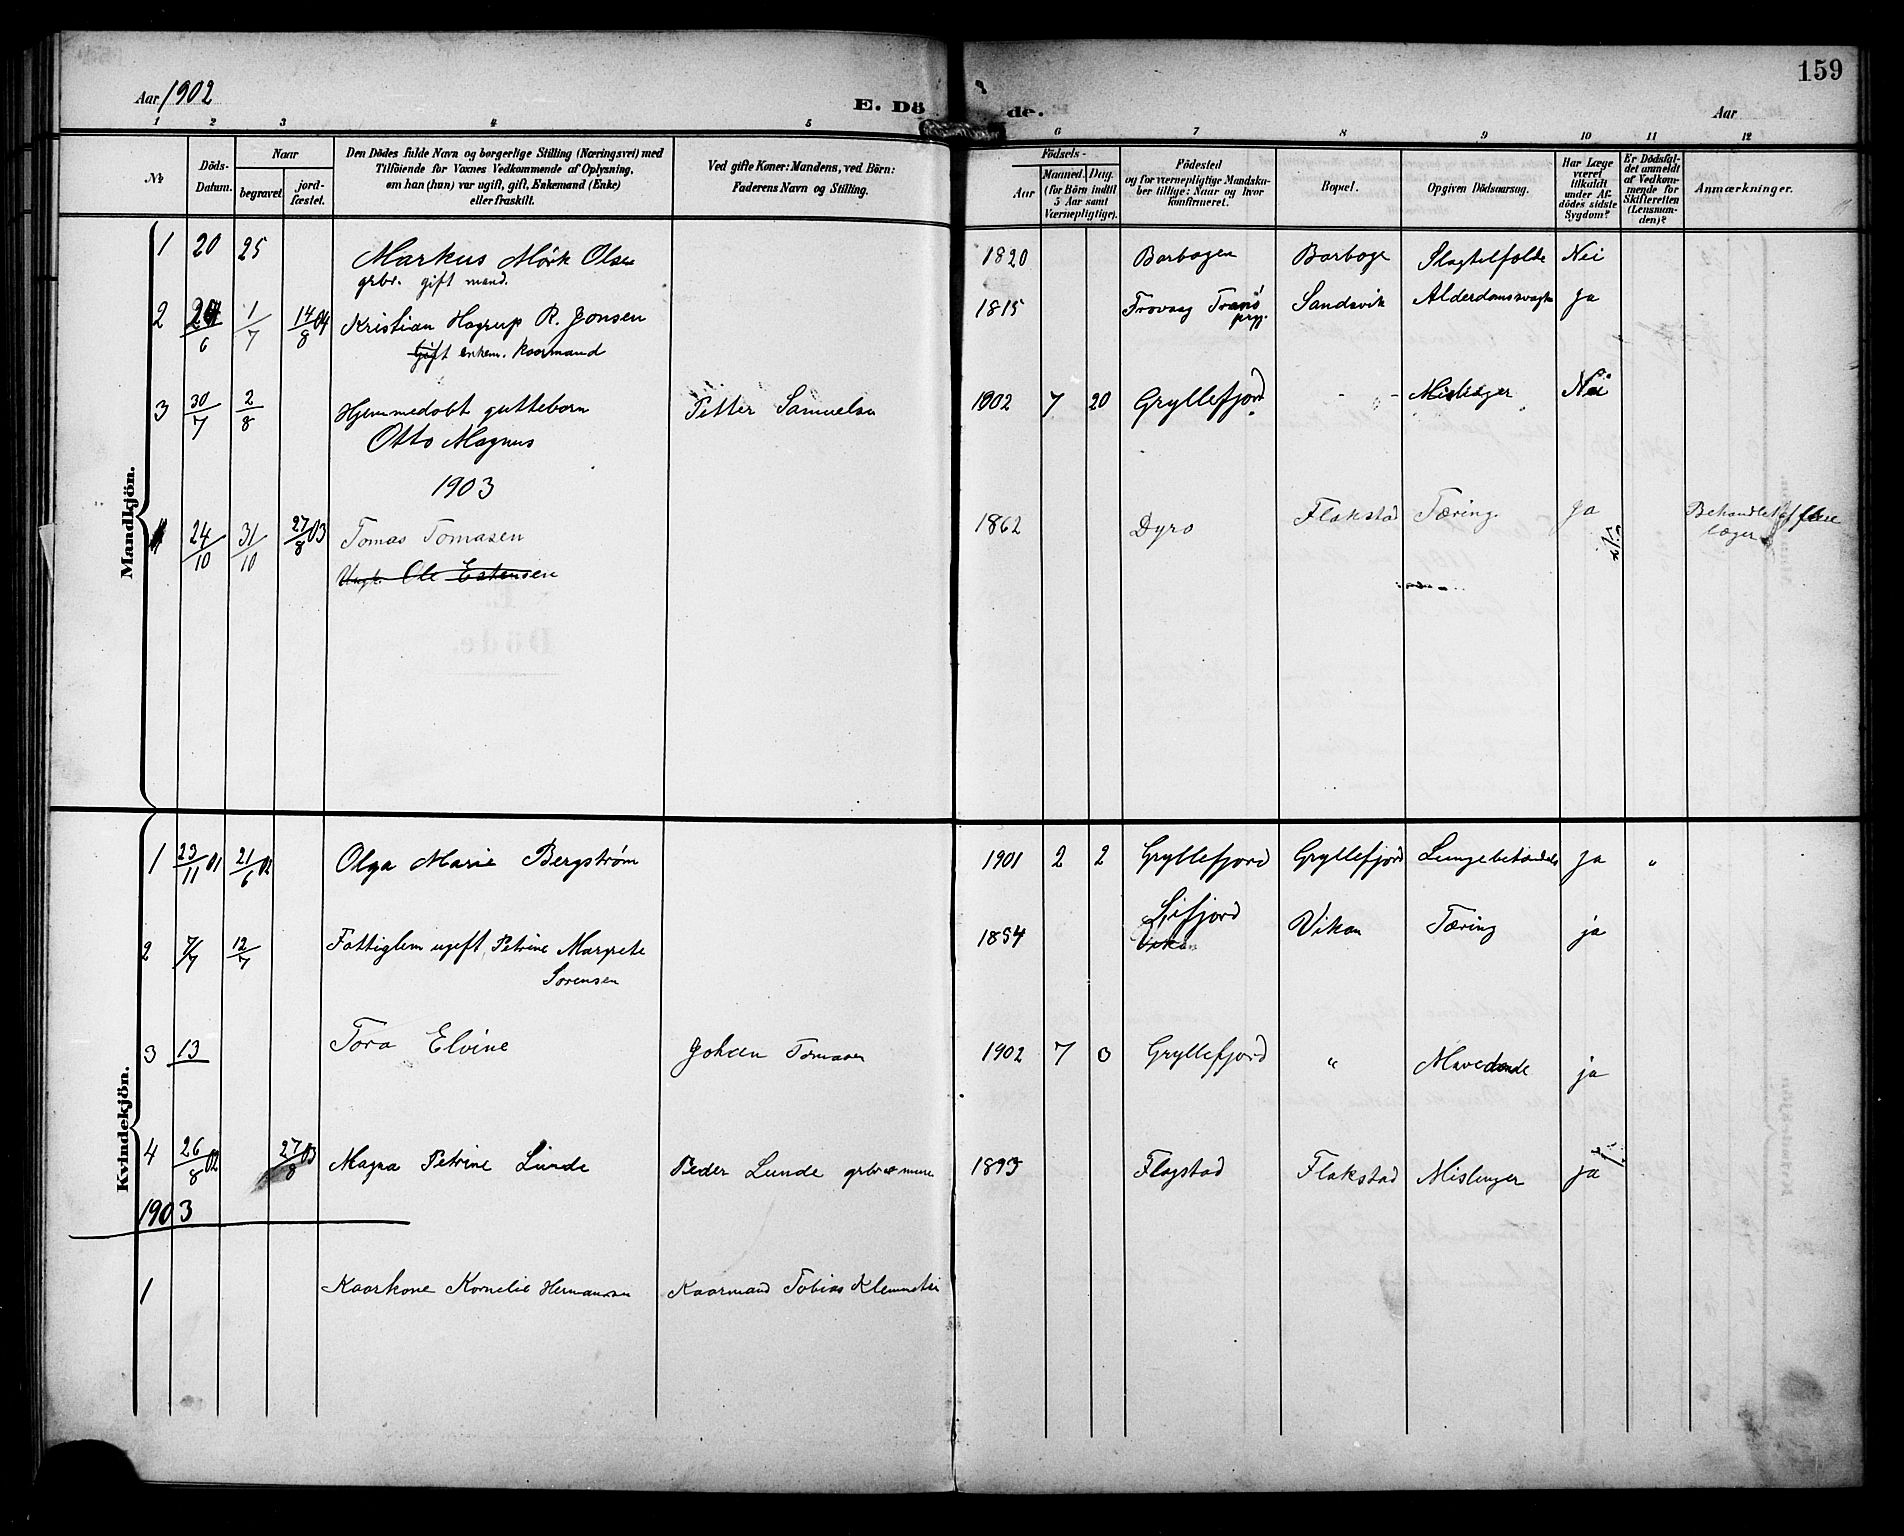 159
Aar 1902
E. Dö de.
Aar
1 2 3 4 5 6 7 8 9 10 11 12
№
Döds-Datum.
Naar
begravet
jord-fæstet.
Den Dödes fulde Navn og borgerlige Stilling (Næringsvei) med
Tilföiende for Voxnes Vedkommende af Oplysning,
om han (hun) var ugift, gift, Enkemand (Enke)
eller fraskilt.
Ved gifte Koner: Mandens, ved Börn:
Faderens Navn og Stilling.
Födsels-
Aar
Maaned. Dag.
(for Börn indtil
5 Aar samt
Værnepligtige).
Födested
og for værnepligtige Mandska-
ber tillige: Naar og hvor
konfirmeret.
Bopæl.
Opgiven Dödsaarsag.
Har Læge
været
tilkaldt
under Af-
dödes sidste
Sygdom?
Er Dödsfal-
det anmeldt
af Vedkom-
mende for
Skifteretten
(Lensman-
den)?
Anmærkninger.
Mandkjön.
1 20 25 Markus Mörk Olsen 1820 Barbogen Barboge Nei
grbr. gift mand.
2 6 1/7 14/8 04 Kristian Hagrup R. Jonsen 1815 Sandsvik Ja
Gift enkem. kaarmand
3 30/7 2/8 Hjemmedöbt guttebarn Petter Samuelsen 1902 7 20 Gryllefjord - - Nei
Otto Magnus
1903
24/10 31/10 27/8 03 Tomas Tomasen 1862 Dyrö Flakstad Tæring. Ja Behandlet af flere
læger
Ungk. Ole Estensen
Kvindekjön.
1 23/11 01 21/6 02 Olga Marie Bergström 1901 2 2 Gryllefjord Gryllefjord Ja "
2 7/7 12/7 Fattiglem ugift Petrine Margrete 1854 Lifjord Vikan Tæring ja
Sörensen Vikan
3 13 Tora Elvine Johan Tomasen 1902 7 0 Gryllefjord " ja
4 26/8 02 27/8 03 Magna Petrine Lunde Peder Lunde 1893 Flagstad Flakstad Mislinger Ja
1903
1 Kaarkone Kornelie Hermansen Kaarmand Tobias